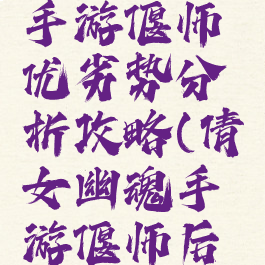 手游偃师
优劣势分
析攻略(倩
女幽魂手
游偃师后